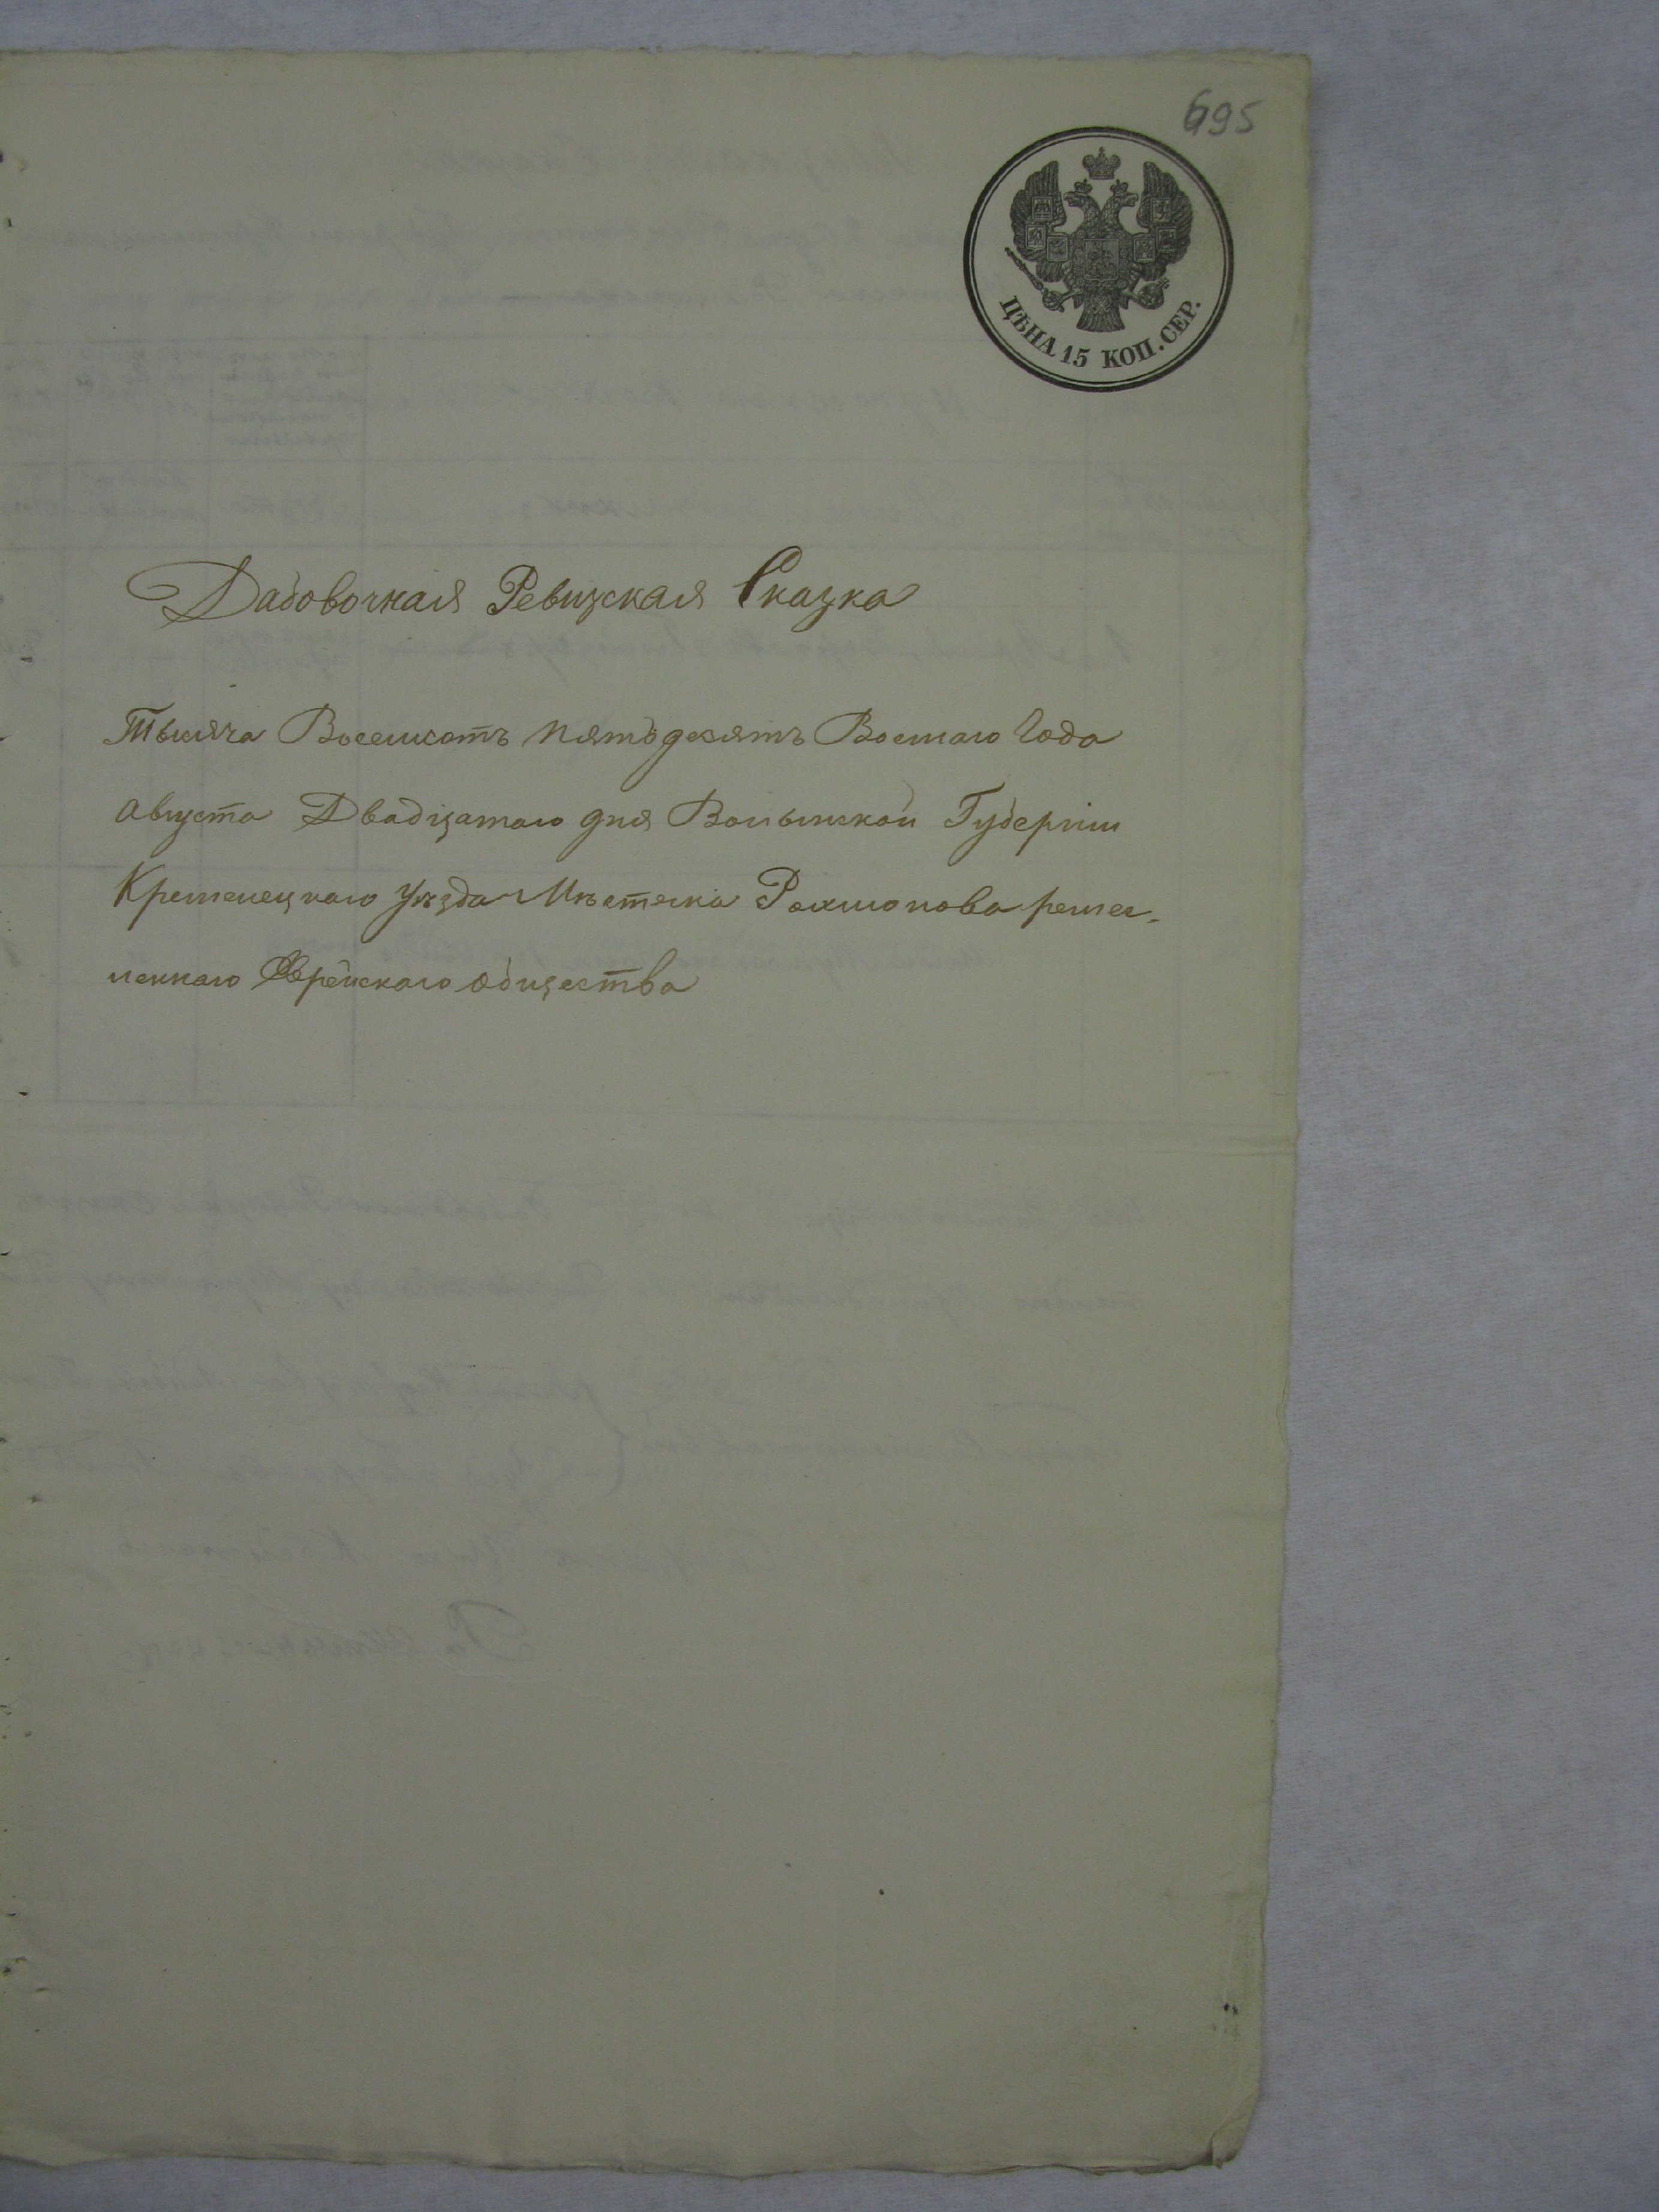 695
ЦѢНА 15 КОП. СЕР.
Дабовочная Ревизская Сказка
Тысяча Восемсотъ пятьдесятъ Восмаго Года
Августа Двадцатаго дня Волынской Губерніи
Кременецкаго уѣзда Мѣстечка Рахманова ремес-
леннаго Еврейскаго общества